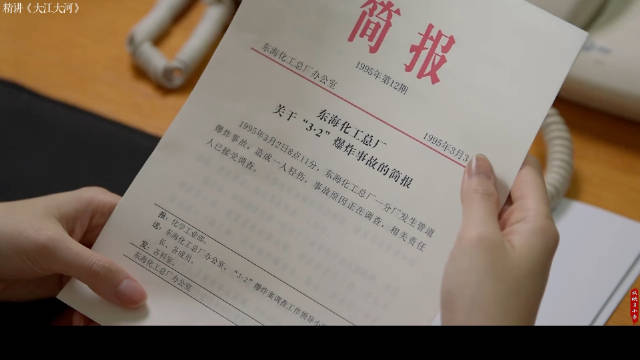 精讲《大江大河》
简报
1995年第12期
东海化工总厂办公室
1995年3月3
东海化工总厂
关于“3·2”爆炸事故的简报
1995年3月2日8点11分,东海化工总厂一分厂发生管道
爆炸事故,造成一人轻伤,事故原因正在调查,相关责任
人已接受调查。
报:化学工业部。
送:东海化工总厂办公室,“3·2”爆炸案调查工作领导小
长、各成员。
发:各科室。
东海化工总厂办公室